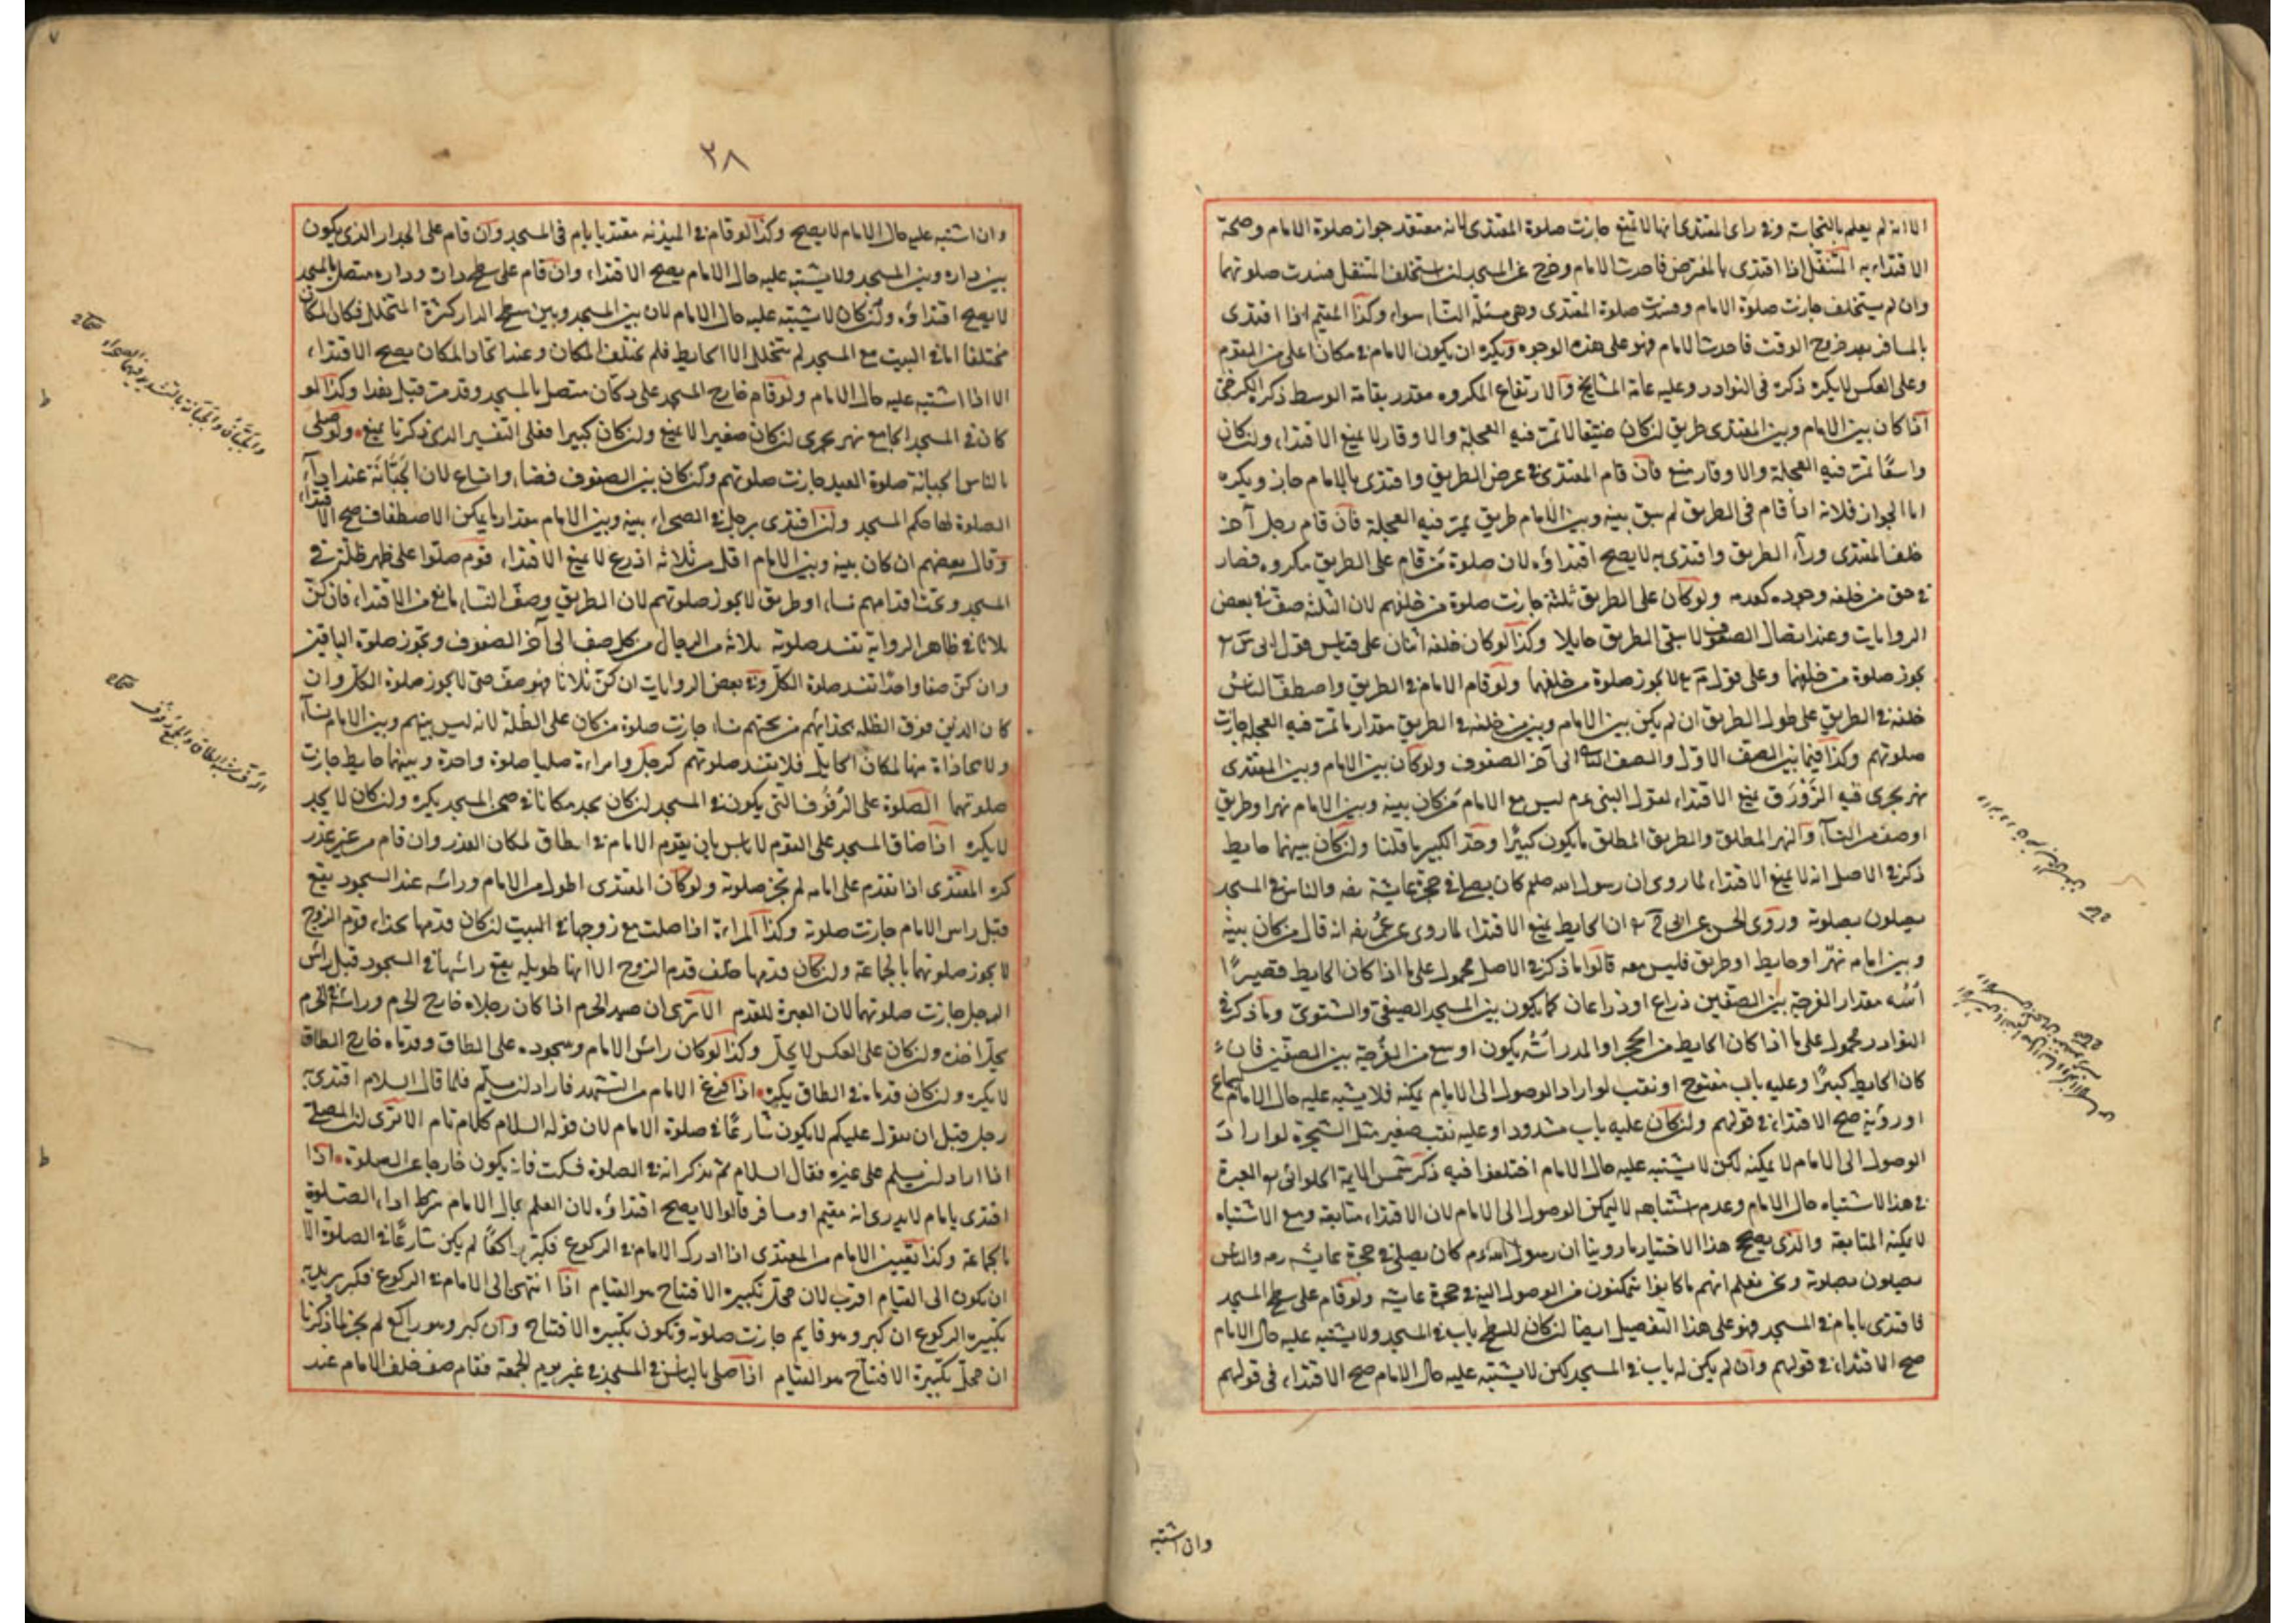 الا انه لم يعلم بالنجاسة وفي راى المقتدى انها لا تمنع جازت صلوة المقتدى لانه معتقد جواز صلوة الامام وصحة
الاقتداء به المتنفل اذا اقتدى بالمفترض فاحدث الامام وخرج عن المسجد ان استخلف المتنفل فسدت صلوتهما
وان لم يستخلف جازت صلوة الامام وفسدت صلوة المقتدى وهى مسئلة النساء سواء وكذا المقيم اذا اقتدى
بالمسافر بعد خروج الوقت فاحدث الامام فهو على هذه الوجوه ويكره ان يكون الامام في مكان اعلى من القوم
وعلى العكس لا يكره ذكره في النوادر وعليه عامة المشايخ والارتفاع المكروه مقدر بقامة الوسط ذكر الكرخى
اذا كان بين الامام وبين المقتدى طريق ان كان ضيقا لا تمر فيه العجلة والاوقار لا يمنع الاقتداء وان كان
واسعًا تمر فيه العجلة والاوقار منع فان قام المقتدى في عرض الطريق واقتدى بالامام جاز ويكره
اما الجواز فلانه اذا قام في الطريق لم يبق بينه وبين الامام طريق يمر فيه العجلة فان قام رجل آخر
خلف المقتدى ورآء الطريق واقتدى به لا يصح اقتداؤه لان صلوة من قام على الطريق مكروه فصار
في حق من خلفه وجوده كعدمه ولو كان على الطريق ثلثة جازت صلوة من خلفهم لان الثلثة صف في بعض
الروايات وعند اتصال الصفوف لا يبقى الطريق حايلا وكذا لو كان خلفه اثنان على قياس قول ابى
يجوز صلوة من خلفهما وعلى قول لا يجوز صلوة من خلفهما ولو قام الامام في الطريق واصطف الناس
خلفه في الطريق على طول الطريق ان لم يكن بين الامام وبين من خلفه في الطريق مقدار ما تمر فيه العجلة جازت
صلوتهم وكذا فيما بين الصف الاول والصف الثانى الى آخر الصفوف ولو كان بين الامام وبين المقتدى
نهر يجرى فيه الزَّورَق يمنع الاقتداء لقول النبى عم ليس مع الامام من كان بينه وبين الامام نهر او طريق
او صف من النسآء والنهر المطلق والطريق المطلق ما يكون كبيرًا وحد الكبير ما قلنا وان كان بينهما حايط
ذكر في الاصل انه لا يمنع الاقتداء لما روى ان رسول الله صلعم كان يصلى في حجرة عايشة رضه والناس في المسجد
يصلون بصلوته وروى الحسن عن ابى ان الحايط يمنع الاقتداء لما روى عن عمر رضه انه قال من كان بينه
وبين امامه نهر او حايط او طريق فليس معه قالوا ما ذكر في الاصل محمول على ما اذا كان الحايط قصيرًا
مقدار الفرجة بين الصفين ذراع او ذراعان كما يكون بين المسجد الصيفى والشتوى وما ذكر في
النوادر محمول على ما اذا كان الحايط من الحجر او المدر يكون اوسع من الفرجة بين الصفين فان
كان الحايط كبيرًا وعليه باب مفتوح او نقب لو اراد الوصول الى الامام يمكنه فلا يشتبه عليه حال الامام بسماع
او رؤية صح الاقتداء في قولهم وان كان عليه باب مشدود او عليه نقب صغير مثل الشجرة لو اراد
الوصول الى الامام لا يمكنه لكن لا يشتبه عليه حال الامام اختلفوا فيه ذكر شمس الايمة الحلوانى العبرة
في هذا الاشتباه حال الامام وعدم اشتباهه لا ليمكن الوصول الى الامام لان الاقتداء متابعة ومع الاشتباه
لا يمكنه المتابعة والذى يصحح هذا الاختيار ما روينا ان رسول الله عم كان يصلى في حجرة عايشه رضه والناس
يصلون بصلوته ونحن نعلم انهم ما كانوا يتمكنون من الوصول اليه في حجرة عايشه ولو قام على سطح المسجد
فاقتدى بامام في المسجد فهو على هذا التفصيل ايضًا ان كان للسطح باب في المسجد ولا يشتبه عليه حال الامام
صح الاقتداء في قولهم وان لم يكن له باب في المسجد لكن لا يشتبه عليه حال الامام صح الاقتداء في قولهم
وان اشتبه
٣٨
وان اشتبه عليه حال الامام لا يصح وكذا لو قام في الميذنه مقتديا بامام في المسجد وان قام على الجدار الذى يكون
بين داره وبين المسجد ولا يشتبه عليه حال الامام يصح الاقتداء وان قام على سطح داره وداره متصل بالمسجد
لا يصح اقتداؤه وان كان لا يشتبه عليه حال الامام لان بين المسجد وبين سطح الدار كثرة المتخلل فكان المكان
مختلفا اما في البيت مع المسجد لم يتخلل الا الحايط فلم يختلف المكان وعند اتحاد المكان يصح الاقتداء
الا اذا اشتبه عليه حال الامام ولو قام خارج المسجد على دكان متصل بالمسجد وقد مرت قبل هذا وكذا لو
كان في المسجد الجامع نهر يجرى ان كان صغيرا لا يمنع وان كان كبيرا فعلى التفسير الذى ذكرنا يمنع ولو صلى
بالناس لجبانة صلوة العيد جازت صلوتهم وان كان بين الصفوف فضاء واتساع لان الجَبَّانَة عند اداء
الصلوة لها حكم المسجد وان اقتدى برجل في الصحراء بينه وبين الامام مقدار ما يمكن الاصطفاف صح الاقتداء
وقال بعضهم ان كان بينه وبين الامام اقل من ثلاثة اذرع لا يمنع الاقتداء قوم صلوا على ظهر ظلة في
المسجد وتحت اقدامهم نساء او طريق لا يجوز صلوتهم لان الطريق وصف النساء مانع من الاقتداء فان كن
ثلاثا في ظاهر الرواية تفسد صلوته ثلاثة من الرجال من كل صف الى آخر الصفوف وتجوز صلوة الباقين
وان كن صفا واحدًا تفسد صلوة الكل وفي بعض الروايات ان كن ثلاثا فهو صف حتى لا يجوز صلوة الكل وان
كان الذين فوق الظلة بحذائهم من تحتهم نساء جازت صلوة من كان على الظلة لانه ليس بينهم وبين الامام نساء
ولا محاذاة منها لمكان الحايل فلا تفسد صلوتهم كرجل وامراءة صليا صلوة واحدة وبينهما حايط جازت
صلوتهما الصلوة على الرفوف التى يكون في المسجد ان كان يجد مكانا في صحن المسجد يكره وان كان لا يجد
لا يكره اذا ضاق المسجد على القوم لا باس بان يقوم الامام في الطاق لمكان العذر وان قام من غير عذر
كره المقتدى اذا تقدم على امامه لم تجز صلوته ولو كان المقتدى اطول من الامام وراسه عند السجود يقع
قبل راس الامام جازت صلوته وكذا المراءة اذا صلت مع زوجها في البيت ان كان قدمها بحذاء قدم الزوج
لا يجوز صلوتهما بالجماعة وان كان قدمها خلف قدم الزوج الا انها طويله يقع راسها في السجود قبل راس
الرجل جازت صلوتهما لان العبرة للقدم الا ترى ان صيد الحرم اذا كان رجلاه خارج الحرم وراسه في الحرم
يحل اخذه وان كان على العكس لا يحل وكذا لو كان راس الامام وسجوده على الطاق وقدماه خارج الطاق
لا يكره وان كان قدماه في الطاق يكره اذا فرغ الامام من التشهد فاراد ان يسلم فلما قال السلام اقتدى به
رجل قبل ان يقول عليكم لا يكون شارعًا في صلوة الامام لان قوله السلام كلام تام الا ترى ان المصلى
اذا اراد ان يسلم على غيره فقال السلام ثم تذكر انه في الصلوة فسكت فانه يكون خارجا عن الصلوة اذا
اقتدى بامام لا يدرى انه مقيم او مسافر قالوا لا يصح اقتداؤه لان العلم بحال الامام شرط اداء الصلوة
بالجماعة وكذا تعيين الامام من المقتدى اذا ادرك الامام في الركوع فكبر راكعًا لم يكن شارعًا في الصلوة الا
ان يكون الى القيام اقرب لان محل تكبيره الافتتاح هو القيام اذا انتهى الى الامام في الركوع فكبر يريد به
تكبيره الركوع ان كبر وهو قايم جازت صلوته وتكون تكبيره الافتتاح وان كبر وهو راكع لم يجز لما ذكرنا
ان محل تكبيرة الافتتاح هو القيام اذا صلى بالناس في المسجد في غير يوم الجمعة فقام صف خلف الامام عند